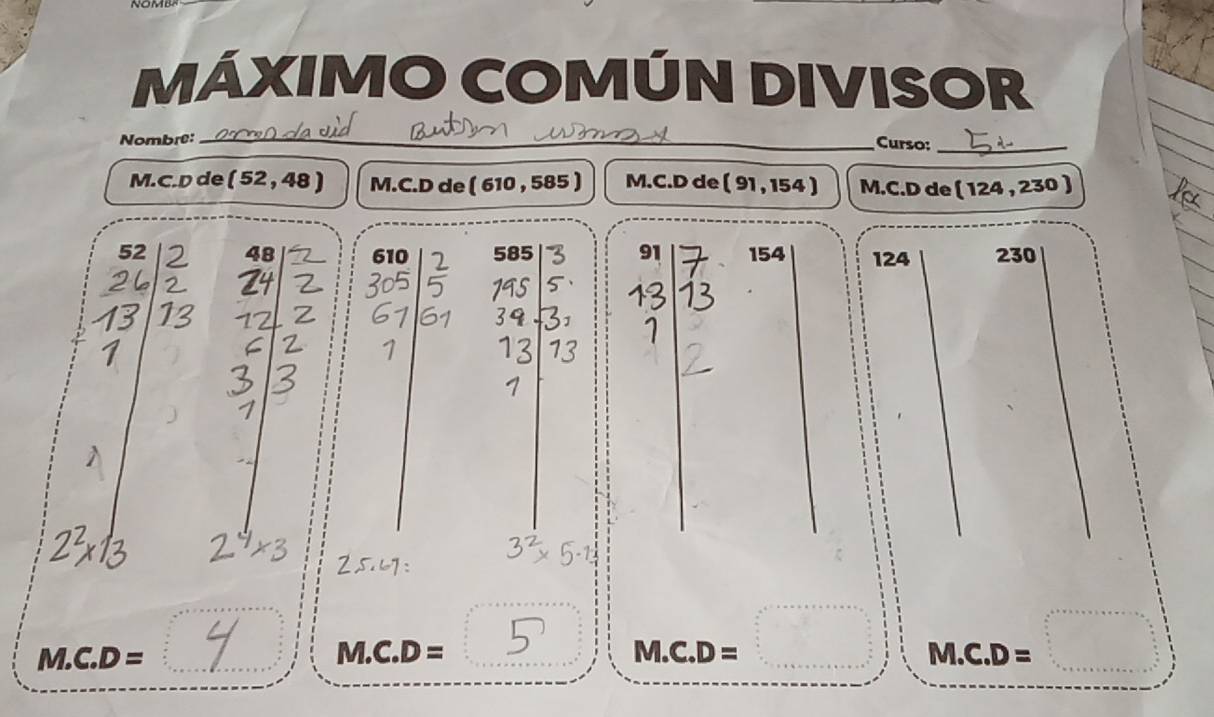 MÁXIMO COMÚN DIVISOR
Nombre: Curso:
M.C.D de ( 52 , 48 ) M.C.D de ( 610 , 585 ) M.C.D de ( 91 , 154 ) M.C.D de ( 124 , 230 )
52 2 48 2 610 2 585 3 91 7 154 124 230
26 2 24 2 305 5 195 5 13 13
13 13 12 2 61 61 39 3 1
1 6 2 1 13 13 2
3 3 1
1
1
2²x13 2⁴x3 2.5.61: 3²x 5.13
M.C.D = 4 M.C.D = 5 M.C.D = M.C.D =